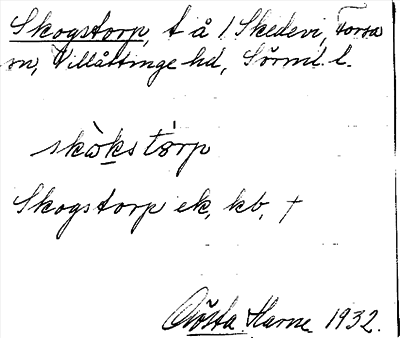 Skogstorp, t å 1 Skedevi, Forssa
sn, Villåttinge hd, Sörml. l.
skὼkstórp
Skogstorp ek, kb, †
Gösta Harne 1932.